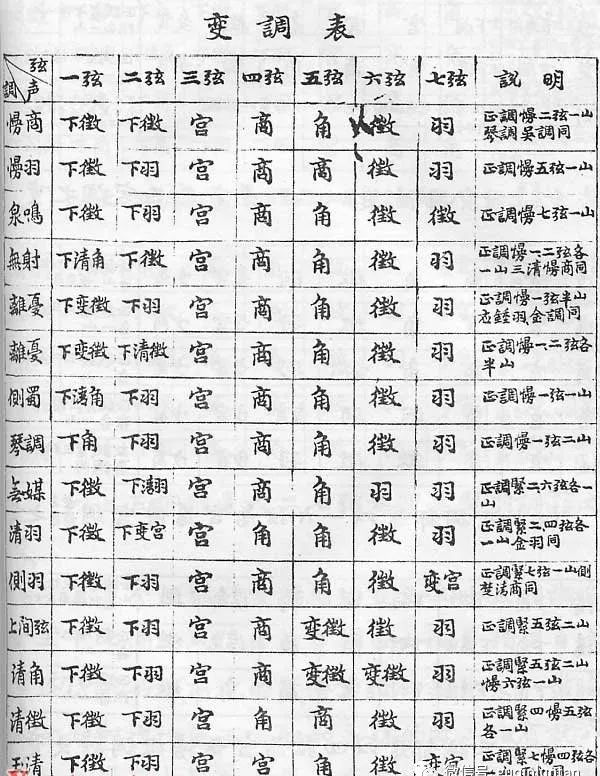 变調表
弦 声 調 一弦 二弦 三弦 四弦 五弦 六弦 七弦 説明
慢商 下徵 下徵 宫 商 角 徵 羽 正調慢二弦一山
琴調吴調同
慢羽 下徵 下羽 宫 商 商 徵 羽 正調慢五弦一山
泉鳴 下徵 下羽 宫 商 角 徵 徵 正調慢七弦一山
無射 下清角 下徵 宫 商 角 徵 羽 正調慢一二弦各
一山三清慢商同
離憂 下变徵 下羽 宫 商 角 徵 羽 正調慢一弦半山
羽金調同
離憂 下变徵 下清徵 宫 商 角 徵 羽 正調慢一二弦各
半山
側蜀 下清角 下羽 宫 商 角 徵 羽 正調慢一弦一山
琴調 下角 下羽 宫 商 角 徵 羽 正調慢一弦二山
無媒 下徵 下清羽 宫 商 角 羽 羽 正調緊二六弦各一
山
清羽 下徵 下变宫 宫 角 角 徵 羽 正調緊二四弦各
一山金羽同
側羽 下徵 下羽 宫 商 角 徵 变宫 正調緊七弦一山側
楚清商同
上间弦 下徵 下羽 宫 商 变徵 徵 羽 正調緊五弦二山
清角 下徵 下羽 宫 商 变徵 变徵 羽 正調緊五弦二山
慢六弦一山
清徵 下徵 下羽 宫 角 商 徵 羽 正調緊四慢五弦
各一山
玉清 下徵 下羽 宫 宫 角 徵 变宫 正調緊七慢四弦各